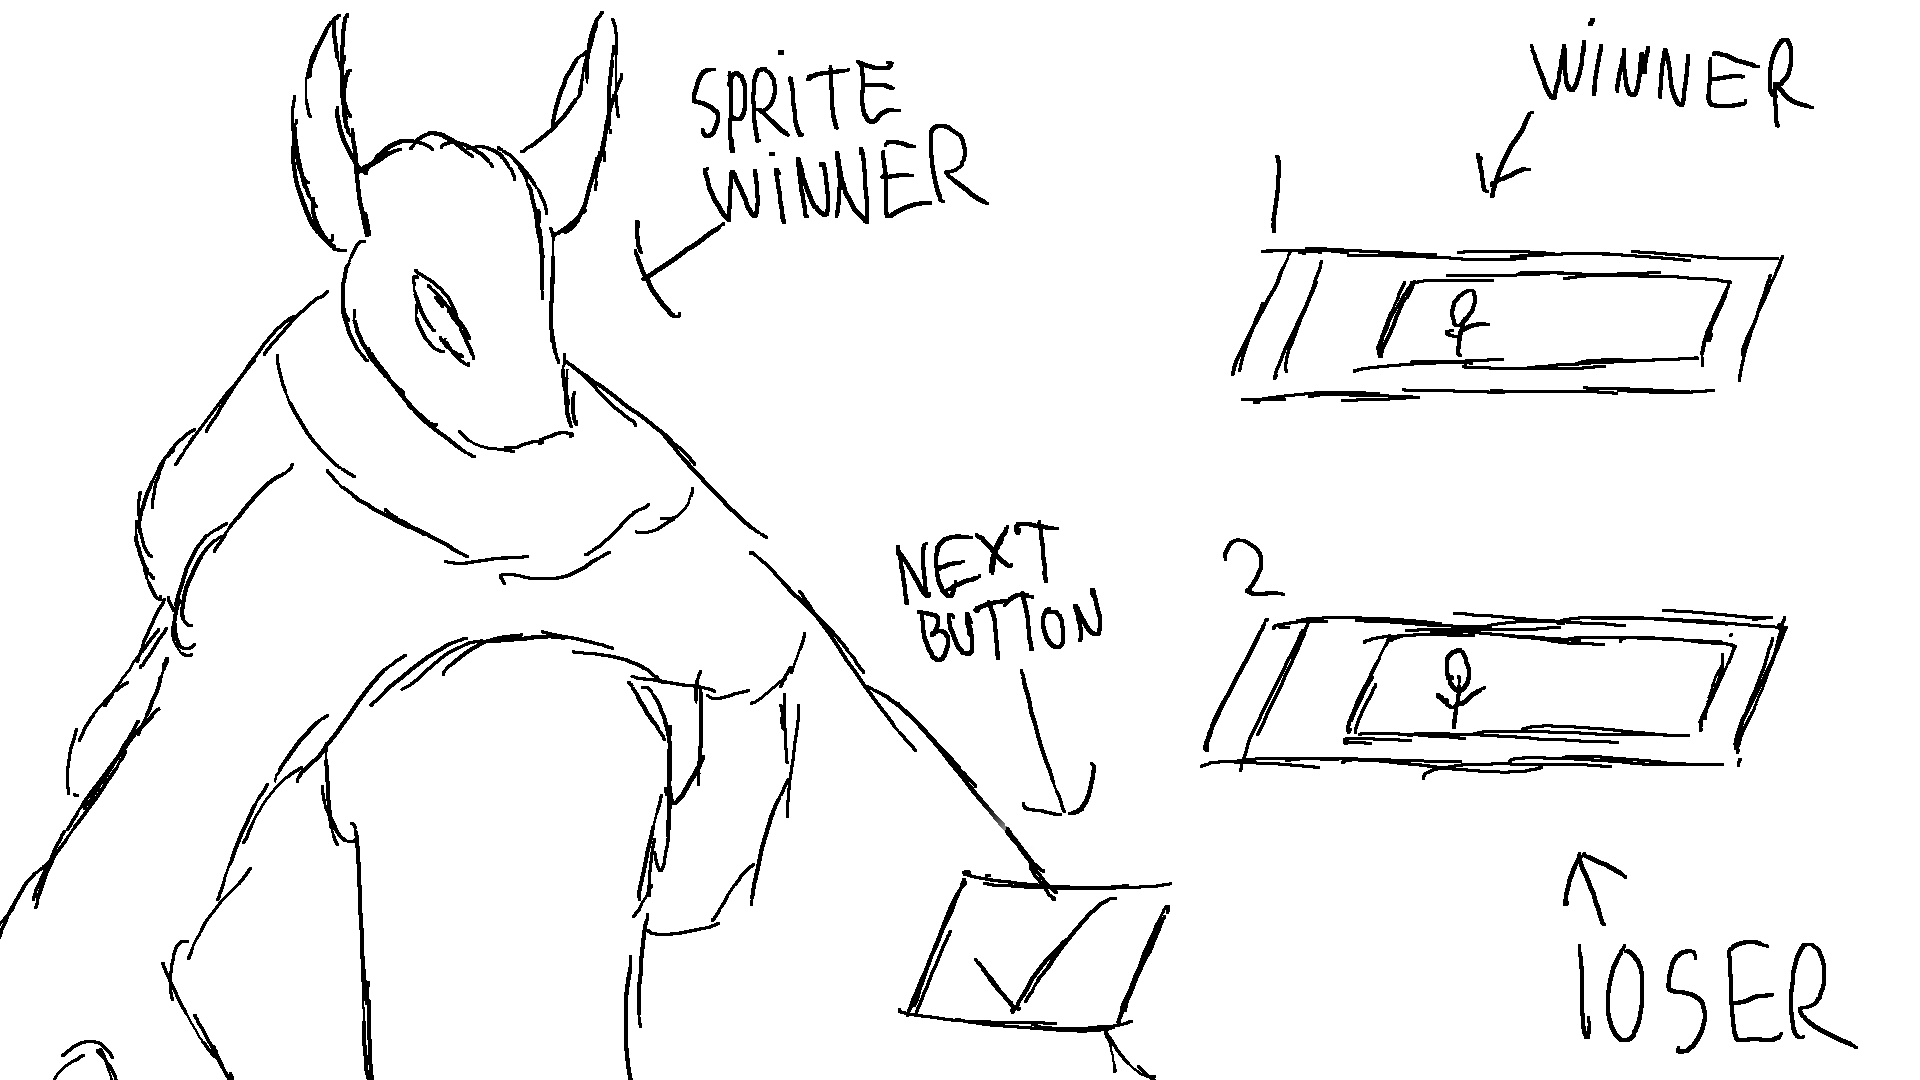 SPRiTE
WiNNER
WiNNER
1
NEXT
BUTTON
2
lOSER